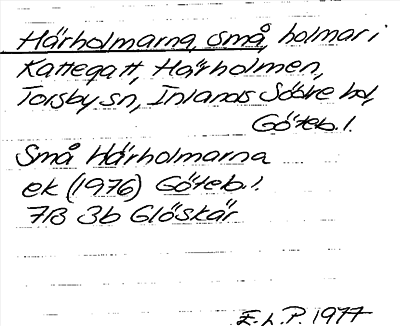 Härholmarna, Små, holmar i
Kattegatt, Härholmen,
Torsby sn, Inlands Södre hd,
Göteb. l.
Små Härholmarna
ek (1976) Göteb. l.
7B 3b Glöskär
E. L. P. 1977